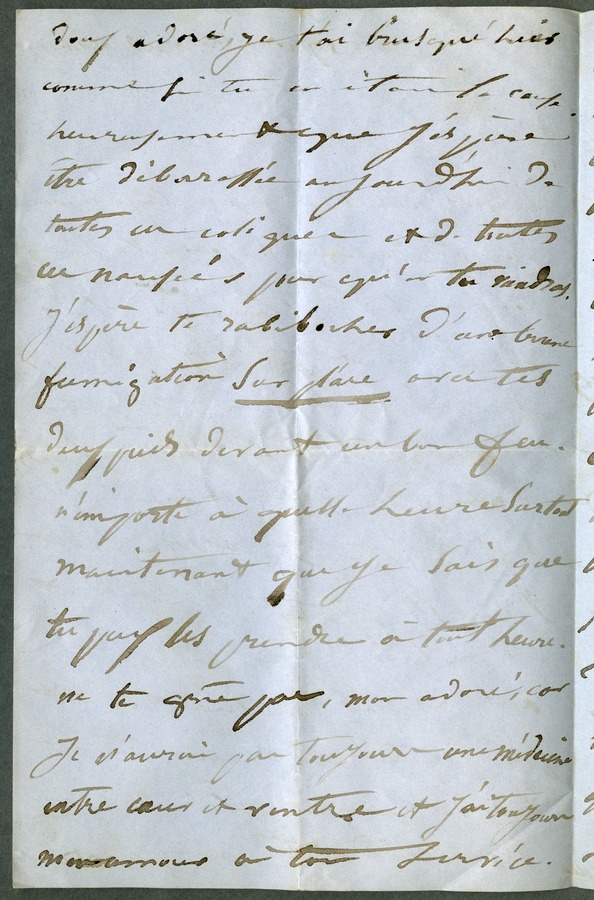 doux adoré, je t'ai brusqué hier
comme si tu en étais la cause
heureusement que j'espère
être débarassée aujourd'hui de
toutes ces coliques et de toutes
ces nausées pour quand tu viendras.
J'espère te rabibocher d'une bonne
fumigation sur place avec tes
deux pieds devant un bon feu.
n'importe à quelle heure surtout
maintenant que je sais que
tu peux les prendre à toute heure.
ne te gêne pas, mon adoré, car
Je n'aurai pas toujours une médecine
entre cœur et ventre et j'ai toujours
mon amour à ton service.